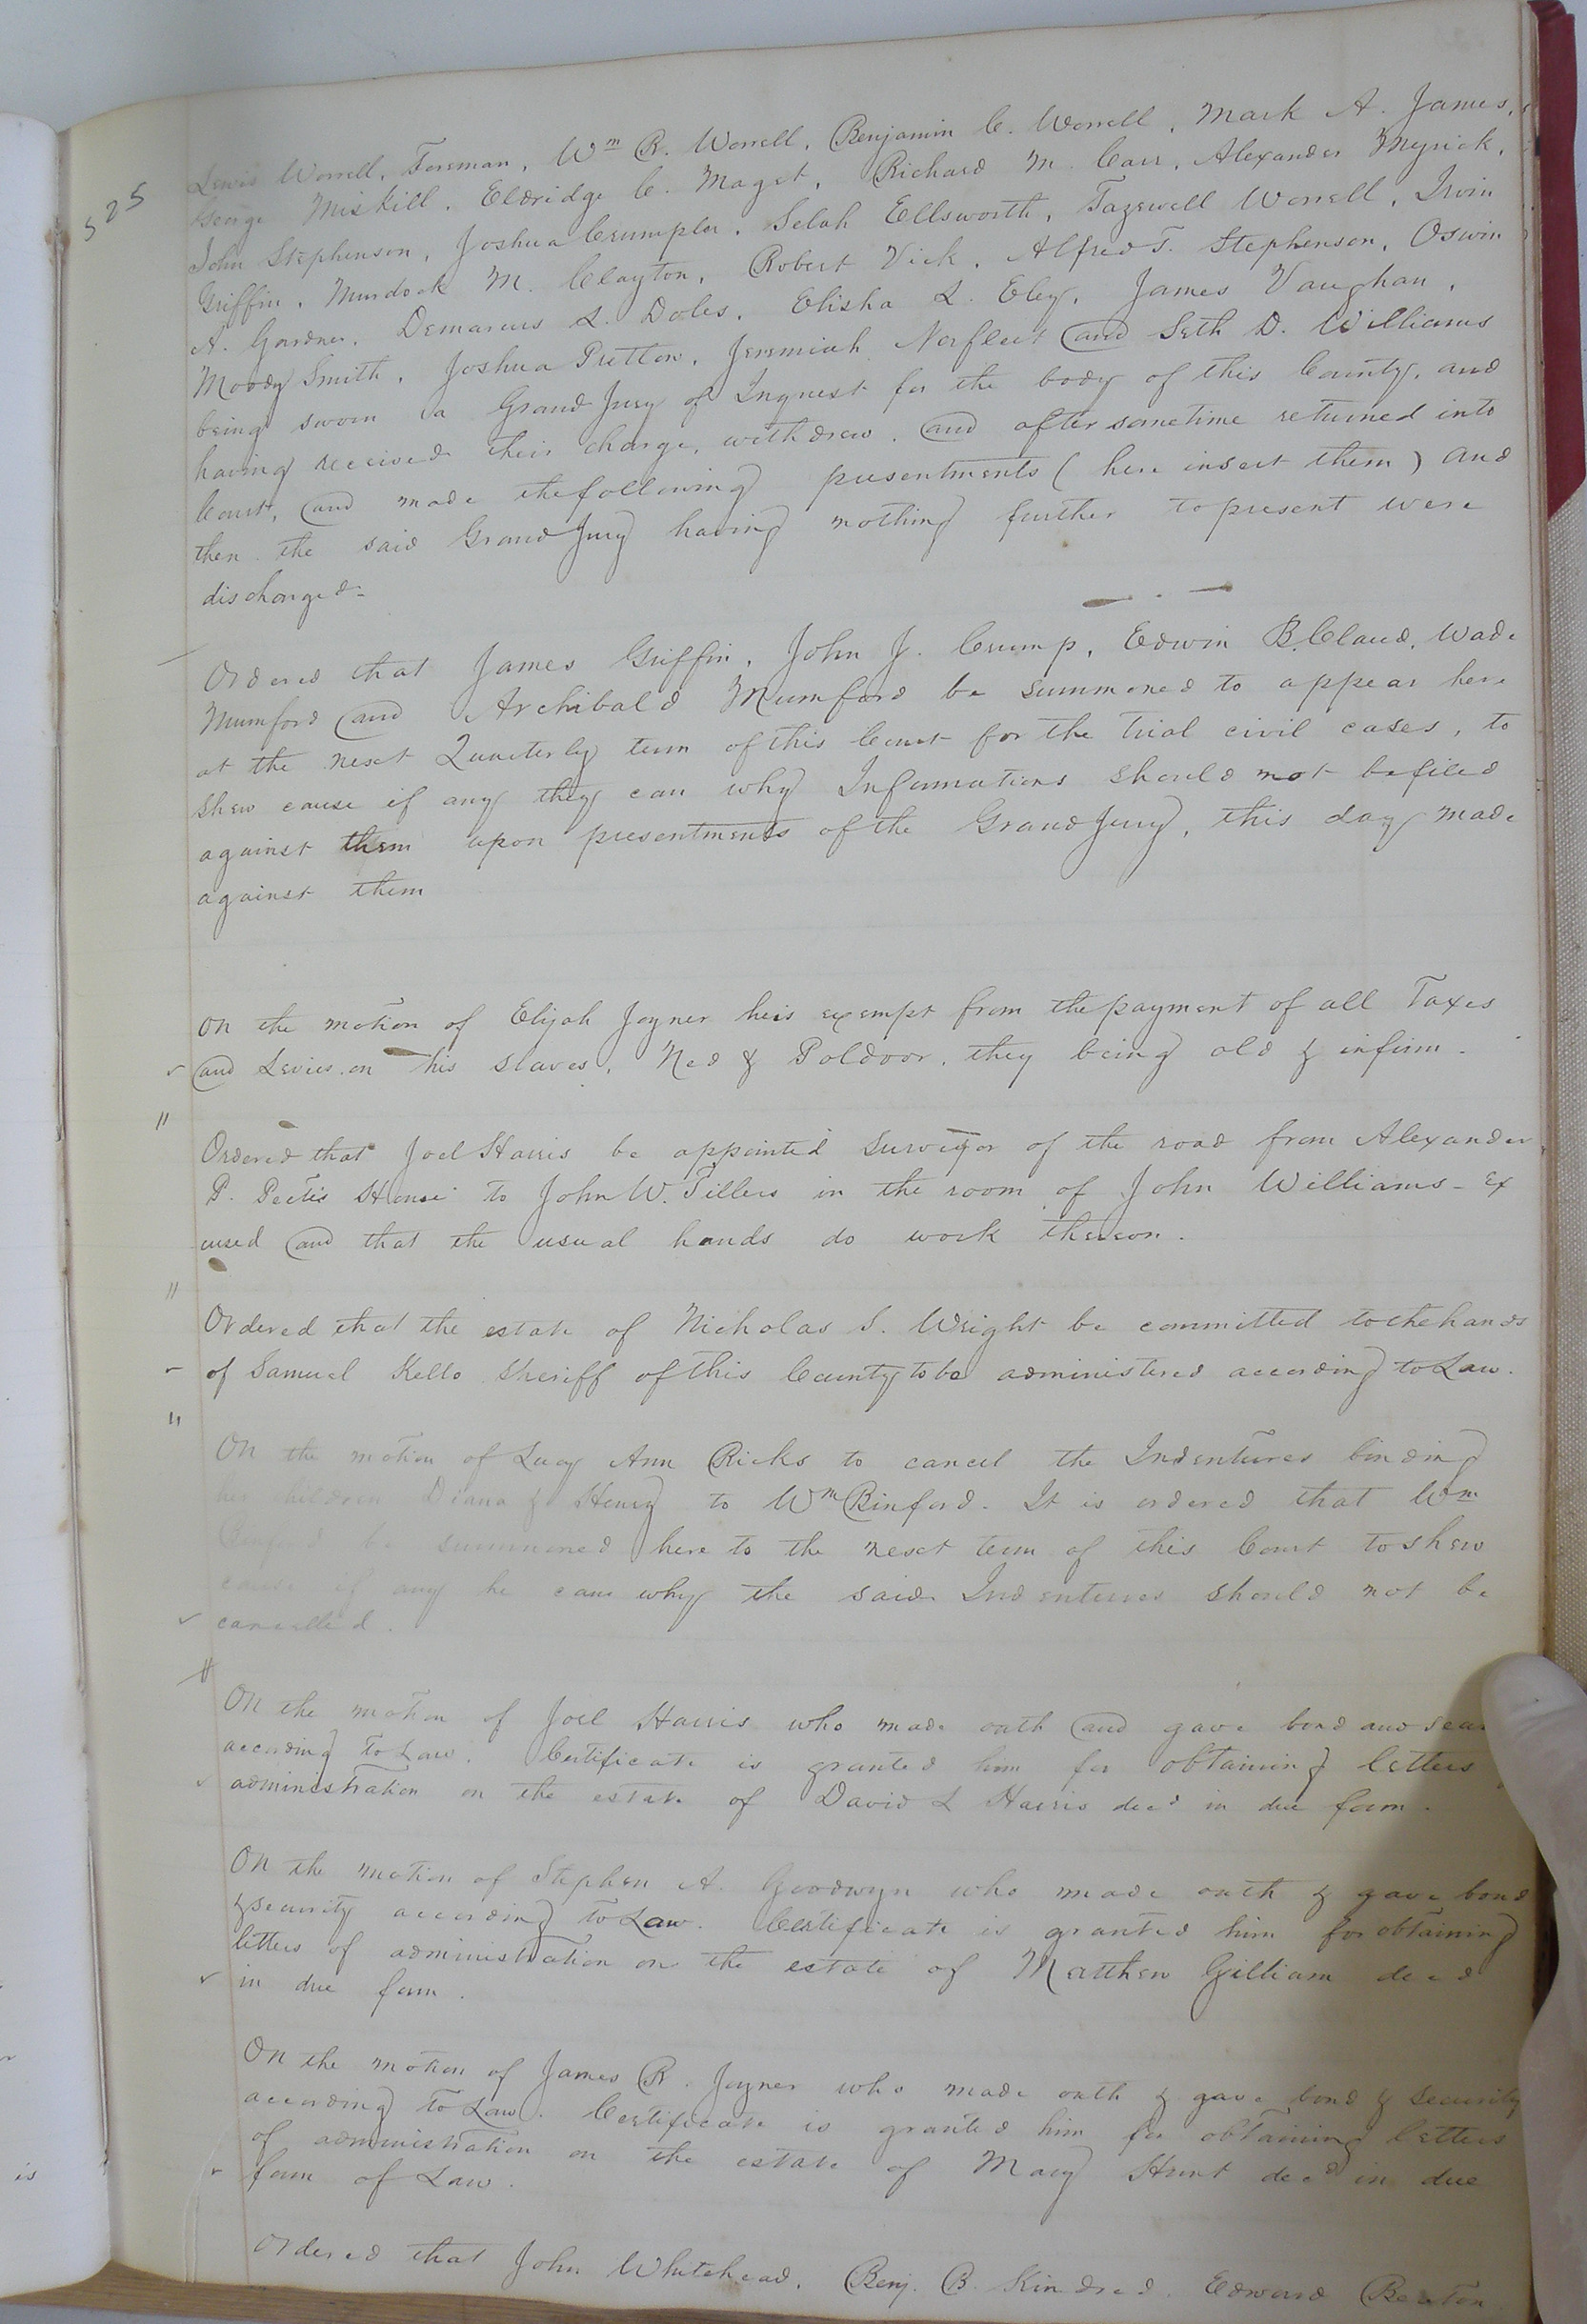 525
Lewis Worrell, Foreman, Wm R. Worrell, Benjamin C. Worrell, Mark A. James,
George Miskill, Eldridge C. Maget, Richard M. Carr, Alexander Myrick,
John Stephenson, Joshua Crumpler, Selah Ellsworth, Tazewell Worrell, Irvin
Griffin, Murdock M. Clayton, Robert Vick, Alfred T. Stephenson, Oswin
A. Gardner, Demarcus L. Doles, Elisha L. Eley, James Vaughan,
Moody Smith, Joshua Pretlow, Jeremiah Norfleet and Seth D. Williams
being sworn a Grand Jury of Inquest for the body of this County, and
having received their charge, withdrew, and after sometime returned into
Court, and made the following presentments (here insert them) and
then the said Grand Jury having nothing further to present were
discharged -
Ordered that James Griffin, John J. Crump, Edwin B. Claud, Wade
Mumford and Archibald Mumford be summoned to appear here
at the next Quarterly term of this Court for the trial civil cases, to
shew cause if any they can why Informations should not be filed
against them upon presentments of the Grand Jury, this day made
against them
On the motion of Elijah Joyner he is exempt from the payment of all Taxes
and Levies on his slaves, Ned & Poldoor, they being old & infirm.
"
Ordered that Joel Harris be appointed Surveyor of the road from Alexander
P. House to John W. Tillers in the room of John Williams - Ex
cused and that the usual hands do work thereon.
"
Ordered that the estate of Nicholas S. Wright be committed to the hands
of Samuel Kello Sheriff of this County to be administered according to Law.
"
On the motion of Lucy Ann Ricks to cancel the Indentures binding
her children Diana & Henry to Wm Binford. It is ordered that Wm
Binford be summoned here to the next term of this Court to shew
cause if any he can why the said Indentures should not be
cancelled.
On the motion of Joel Harris who made oath and gave bond and secu
according to Law. Certificate is granted him for obtaining letters
administration on the estate of David L Harris decd in due form.
On the motion of Stephen A. Goodwyn who made oath & gave bond
& security according to Law. Certificate is granted him for obtaining
letters of administration on the estate of Matthew Gilliam decd
in due form.
On the motion of James R. Joyner who made oath & gave bond & security
according to Law. Certificate is granted him for obtaining letters
of administration on the estate of Mary Hunt decd in due
form of Law.
Ordered that John Whitehead, Benj. B. Kindred, Edward Beaton
is